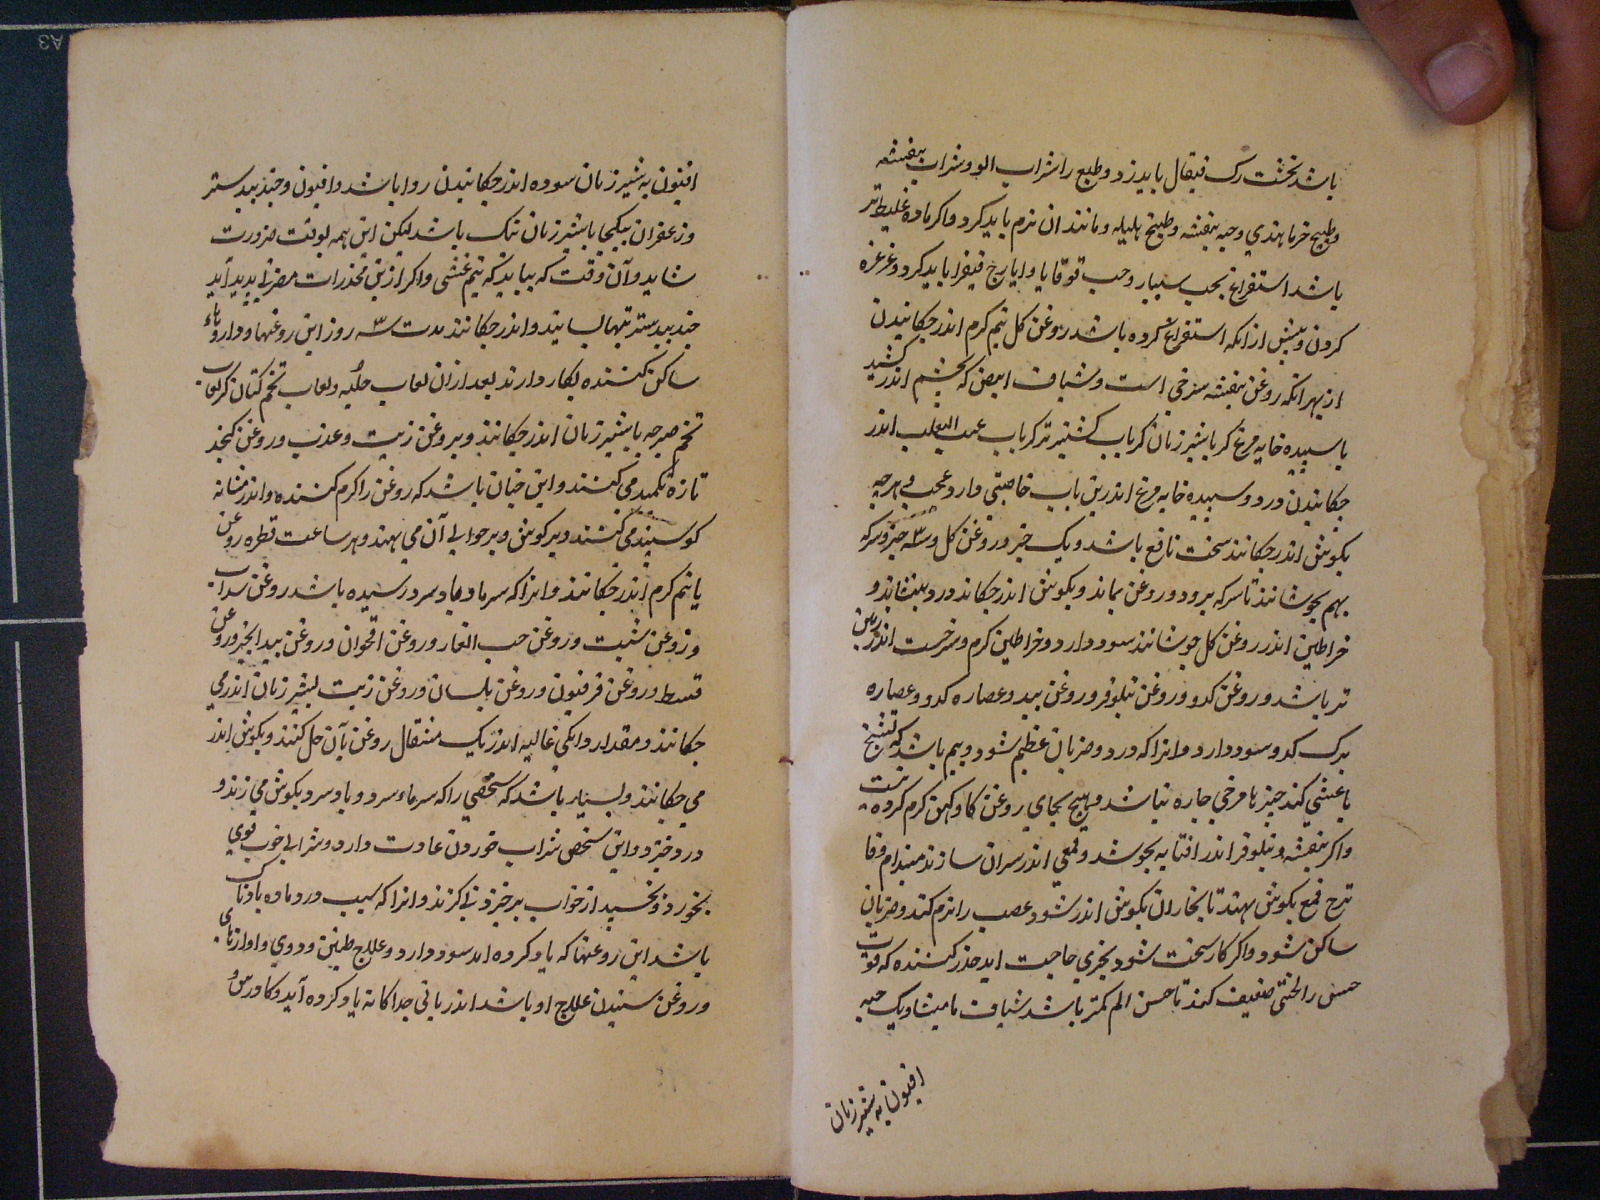 باشد نخشت رک قیقال باید زد و طبع را شراب الو و شراب بنفشه
و طبیخ خرما هندی و حب بنفشه و طبیخ هلیله و مانند ان نرم باید کرد و اکر ماده غلیظ تر
باشد استفراغ بحب سیبار و حب قوقایا و ایارج فیقرا باید کرد و غرغره
کردن و پیش از انکه استفراغ کرده باشد روغن کل نیم کرم اندر چکانیدن
از بهر انکه روغن بنفشه مرخی است و شیاف ابیض که بچشم اندر کشید
با سپیده خایه مرغ کر با شیر زنان کر باب کشنیز تر کر باب عنب الثعلب اندر
چکانیدن درد و سپیده خایه مرغ اندرین باب خاصیتی دارد عجب و هرچه
بکوش اندر چکانند سخت نافع باشد و یک جزو روغن کل و سه جزو سرکه
بهم بجوشانند تا سرکه برود و روغن بماند و بکوش اندر چکاند درد بنشاند و
خراطین اندر روغن کل جوشانند سود دارد و خراطین کرم و نرمست اندرین
تر باشد و روغن کدو و روغن نیلوفر و روغن بید و عصاره کدو و عصاره
برک کدو سود دارد و انرا که درد و ضربان عظیم شود و بیم باشد که تشنج
یا غشی کند جز با مرخی چاره نباشد و هیچ بجای روغن کاو کهن کرم کرده نیست
و اکر بنفشه و نیلوفر اندر افتابه بجوشد و قمعی اندر سر ان سازند مهندام و فا
ترح قمع بکوش نهند تا بخار ان بکوش اندر شود عصب را نرم کند و ضربان
ساکن شود و اکر کار سخت شود بچیزی حاجت اید خدر کننده که قوت
حس را لختی ضعیف کند تا حس الم کمتر باشد شیاف مامیثا و یک حبه
افیون به شیر زنان
افیون به شیر زنان سوده اندر چکانیدن روا باشد و افیون و جند بیدستر
و زعفران بیکجا با شیر زنان نیک باشد لیکن این همه بوقت ضرورت
شاید و آن وقت که بیاید که بیم غشی و اکر ازین مخدرات مضرتی پدید آید
جند بیدستر تنها بسایند و اندر چکانند مدت سه روز این روغنها و داروهاء
ساکن کننده بکار دارند بعد ازان لعاب حلبه و لعاب تخم کتان کر لعاب
تخم مر جه با شیر زنان اندر چکانند و بروغن زیت و عذب و روغن کنجد
تازه تکمید می کنند و این چنان باشد که روغن را کرم کننده و اندر مثانه
کوسپند می کنند و بر کوش و بر حوالی آن می نهند و هر ساعت قطره روغن
یا نیم کرم اندر چکانند و انرا که سرما و باد سرد رسیده باشد روغن سداب
و روغن شبت و روغن حب الغار و روغن اقحوان و روغن بید انجیر و روغن
قسط و روغن فرفیون و روغن بلسان و روغن زیت بشیر زنان اندر می
چکانند و مقدار دانکی غالیه اندر یک مثقال روغن بآن حل کنند و بکوش اندر
می چکانند و بسیار باشد که شخصی را که سرماء سرد و باد سرد بکوش می زند و
درد خیزد و این شخص شراب خوردن عادت دارد و شرابی خوب قوی
بخورد و بخسبد از خواب برخیزد بی کزند و انرا که سبب درد ماده باد ناک
باشد این روغنها که یاد کرده اند سود دارد و علاج طنین و دوی و اوازهای
و روغن شنیدن علاج او باشد اندر بابی جداکانه یاد کرده آید و کاورس